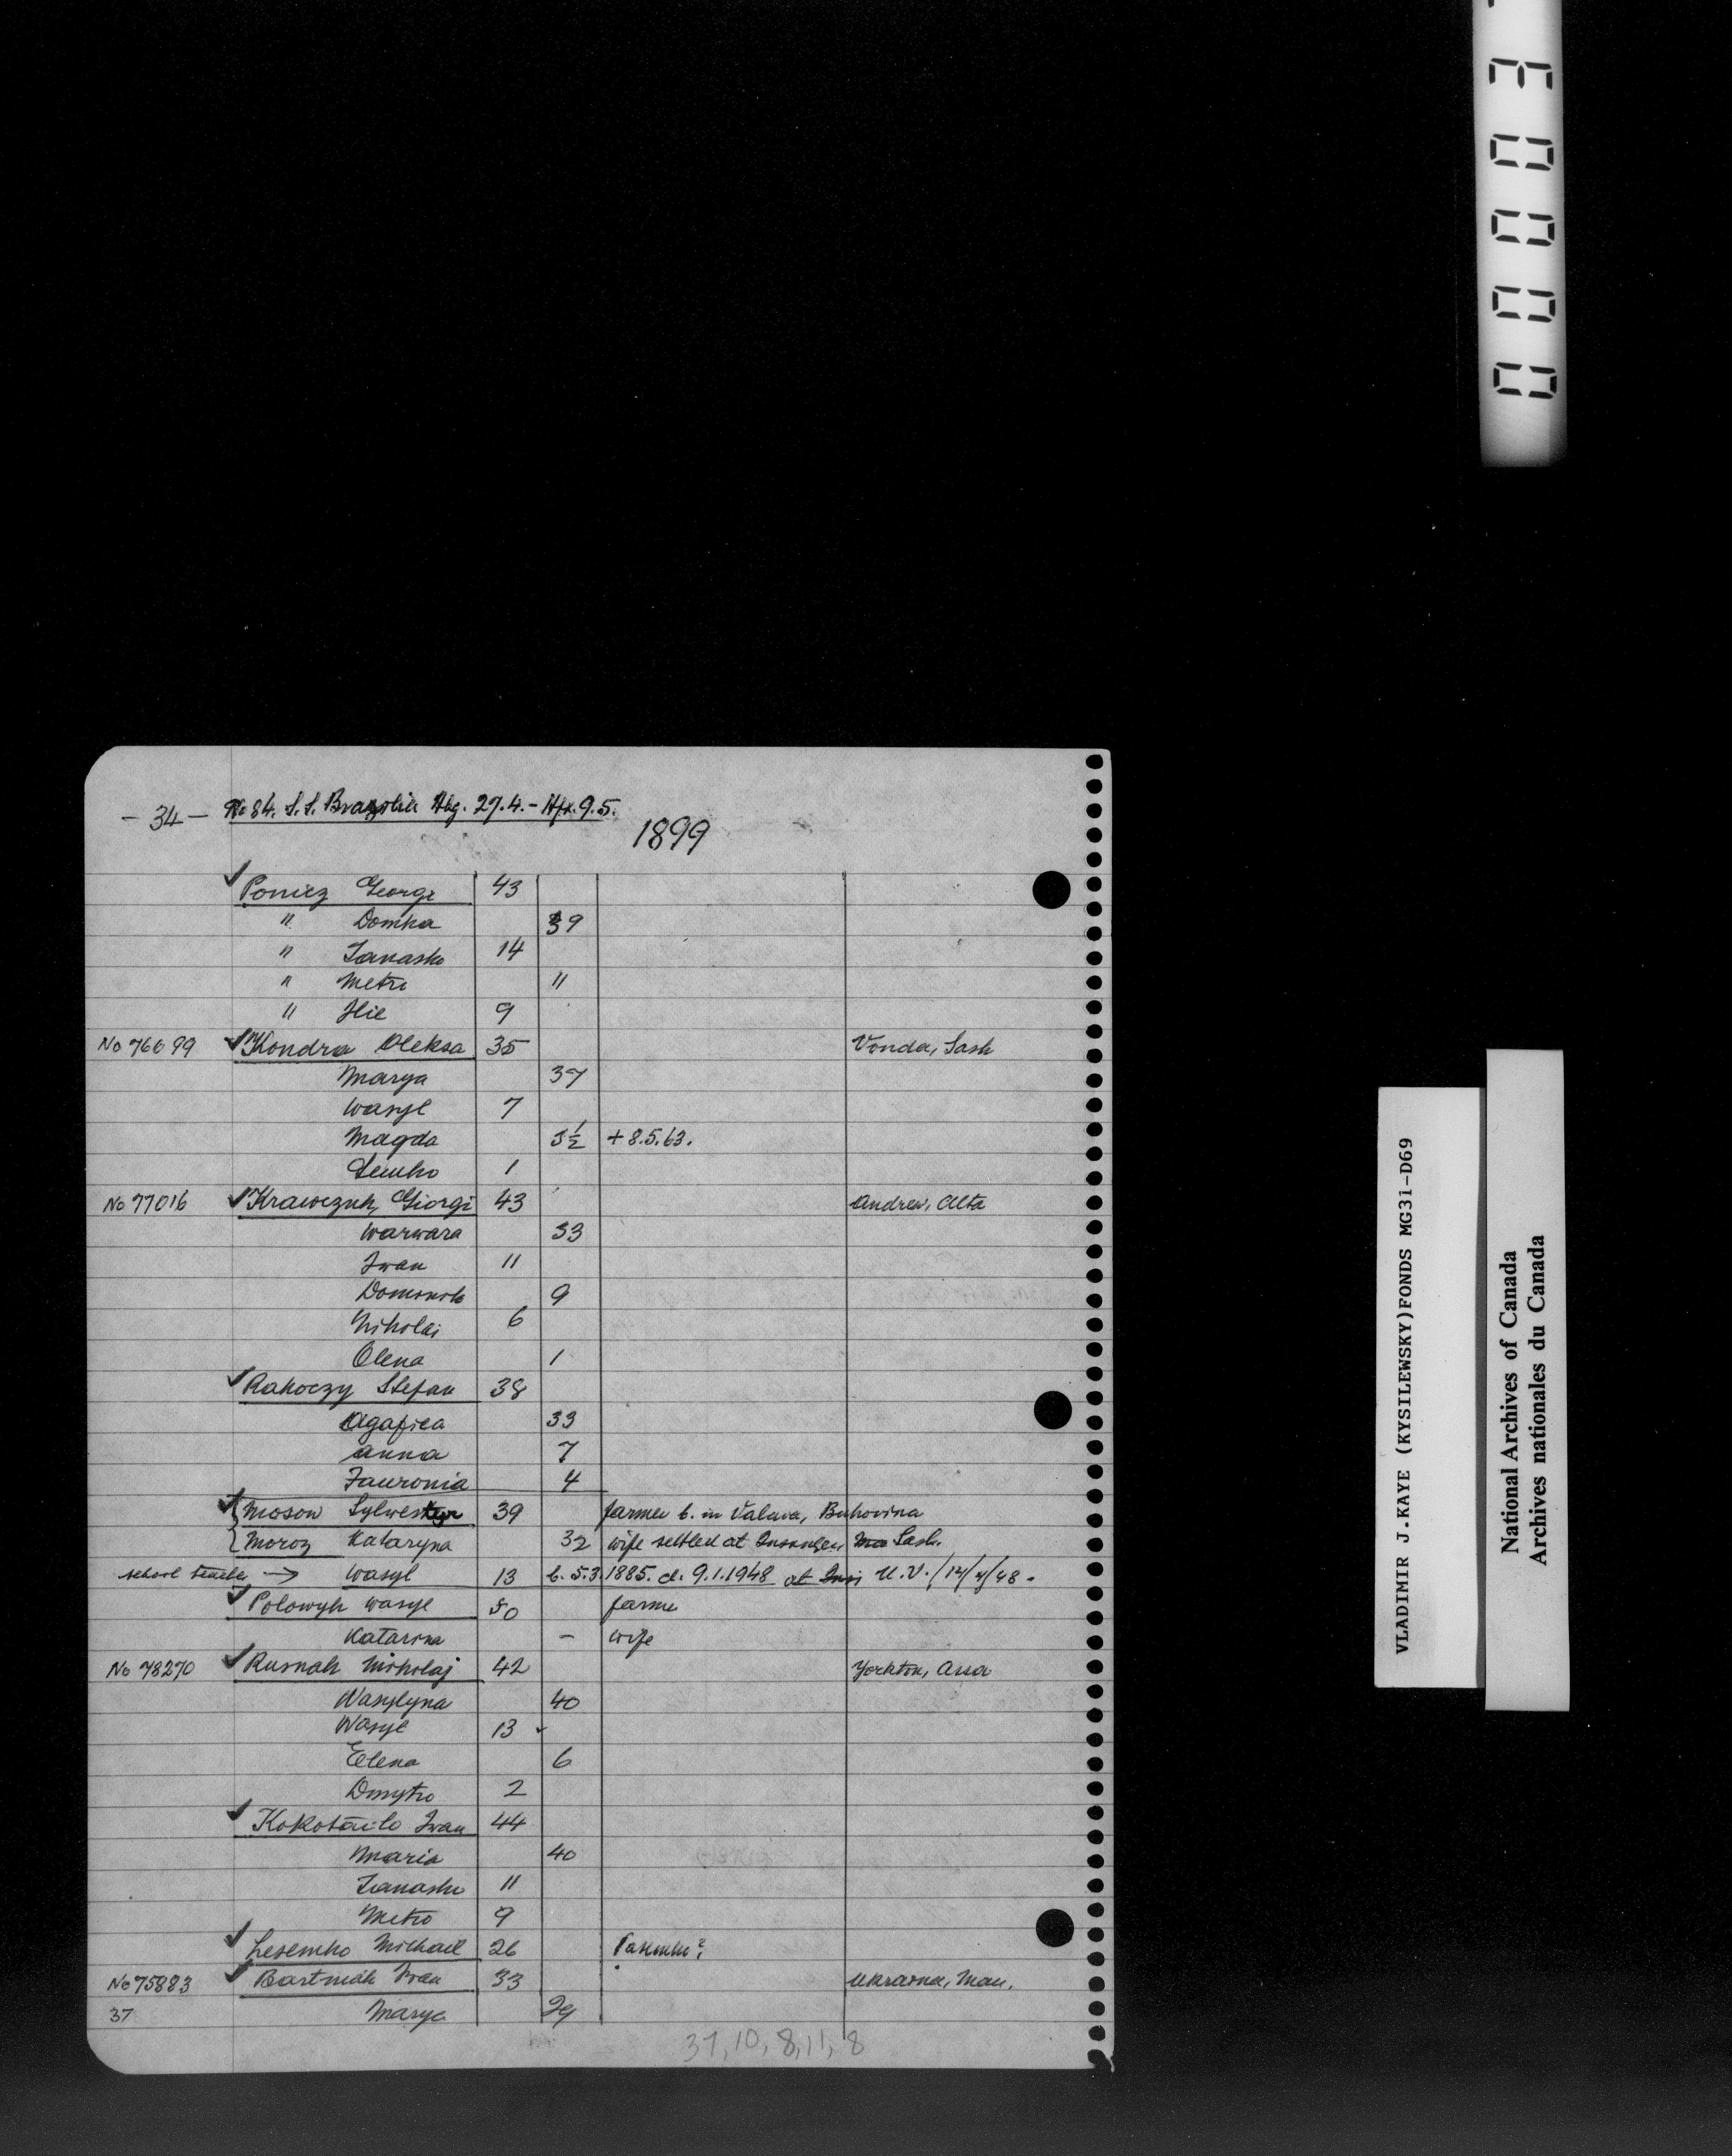 - 34 - No 84. S.S. Brazilia Hbg. 27.4. - Hfx. 9.5.
1899
Poniez Georgi 43
" Domka 39
" Tanasko 14
" Metro 11
" Ilie 9
No 76699 Kondra Oleksa 35 Vonda, Sask
Marya 37
Wasyl 7
Magda 3½ + 8.5.63.
Semko 1
No 77016 Krawczuk, Giorgi 43 Andrew, Alta
Warwara 33
Iwan 11
9
Nikolai 6
Olena 1
Rakoczy Stefan 38
Agafiea 33
Anna 7
Jawronia 4
Mosow Sylwester 39 farmer b. in Valava, Bukovina
Moroz Kataryna 32 wife settled at Insinger, Ma Sask.
school teacher → Wasyl 13 b. 5.3.1885. d. 9.1.1948 at Insi U.V./14/4/48.
Polowyk Wasyl 50 farmer
Katarina - wife
No 78270 Rusnak Nikolaj 42 Yorkton, Assa
Wasylyna 40
Wasyl 13
Elena 6
Dmytro 2
Kokotailo Iwan 44
Maria 40
Tanasko 11
Metro 9
Lesemko Michael 26
No 75883 Bartniak Iwan 33 Ukraina, Man.
37 Marya 29
37, 10, 8, 11, 8
00003
VLADIMIR J.KAYE (KYSILEWSKY)FONDS MG31-D69
National Archives of Canada
Archives nationales du Canada